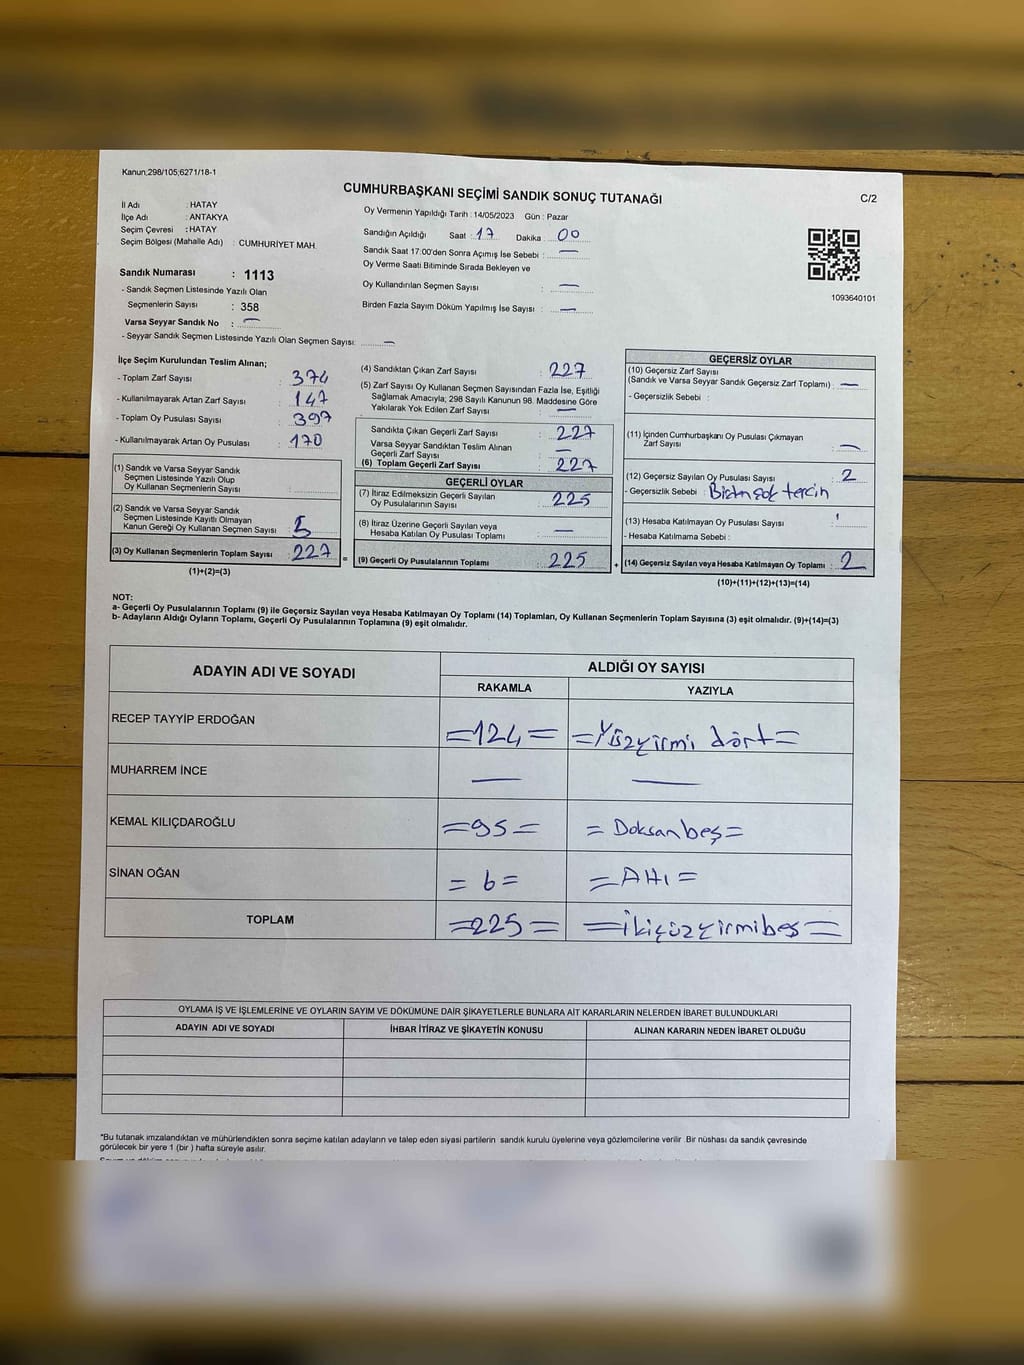 Kanun;298/105;6271/18-1
CUMHURBAŞKANI SEÇİMİ SANDIK SONUÇ TUTANAĞI
C/2
İl Adı : HATAY
İlçe Adı : ANTAKYA
Seçim Çevresi : HATAY
Seçim Bölgesi (Mahalle Adı) : CUMHURİYET MAH.
Sandık Numarası : 1113
- Sandık Seçmen Listesinde Yazılı Olan
Seçmenlerin Sayısı : 358
Varsa Seyyar Sandık No : —
- Seyyar Sandık Seçmen Listesinde Yazılı Olan Seçmen Sayısı: —
Oy Vermenin Yapıldığı Tarih : 14/05/2023 Gün : Pazar
Sandığın Açıldığı Saat : 17 Dakika : 00
Sandık Saat 17:00'den Sonra Açımış İse Sebebi : —
Oy Verme Saati Bitiminde Sırada Bekleyen ve
Oy Kullandırılan Seçmen Sayısı : —
Birden Fazla Sayım Döküm Yapılmış İse Sayısı : —
1093640101
İlçe Seçim Kurulundan Teslim Alınan;
- Toplam Zarf Sayısı : 374
- Kullanılmayarak Artan Zarf Sayısı : 147
- Toplam Oy Pusulası Sayısı : 397
- Kullanılmayarak Artan Oy Pusulası : 170
(1) Sandık ve Varsa Seyyar Sandık
Seçmen Listesinde Yazılı Olup
Oy Kullanan Seçmenlerin Sayısı :
(2) Sandık ve Varsa Seyyar Sandık
Seçmen Listesinde Kayıtlı Olmayan
Kanun Gereği Oy Kullanan Seçmen Sayısı : 5
(3) Oy Kullanan Seçmenlerin Toplam Sayısı : 227
(1)+(2)=(3)
(4) Sandıktan Çıkan Zarf Sayısı : 227
(5) Zarf Sayısı Oy Kullanan Seçmen Sayısından Fazla İse, Eşitliği
Sağlamak Amacıyla; 298 Sayılı Kanunun 98. Maddesine Göre
Yakılarak Yok Edilen Zarf Sayısı : —
Sandıkta Çıkan Geçerli Zarf Sayısı : 227
Varsa Seyyar Sandıktan Teslim Alınan
Geçerli Zarf Sayısı : —
(6) Toplam Geçerli Zarf Sayısı : 227
GEÇERLİ OYLAR
(7) İtiraz Edilmeksizin Geçerli Sayılan
Oy Pusulalarının Sayısı : 225
(8) İtiraz Üzerine Geçerli Sayılan veya
Hesaba Katılan Oy Pusulası Toplamı : —
= (9) Geçerli Oy Pusulalarının Toplamı : 225
GEÇERSİZ OYLAR
(10) Geçersiz Zarf Sayısı
(Sandık ve Varsa Seyyar Sandık Geçersiz Zarf Toplamı) : —
- Geçersizlik Sebebi :
(11) İçinden Cumhurbaşkanı Oy Pusulası Çıkmayan
Zarf Sayısı : —
(12) Geçersiz Sayılan Oy Pusulası Sayısı : 2
- Geçersizlik Sebebi : Birden tercih
(13) Hesaba Katılmayan Oy Pusulası Sayısı :
- Hesaba Katılmama Sebebi :
+ (14) Geçersiz Sayılan veya Hesaba Katılmayan Oy Toplamı : 2
(10)+(11)+(12)+(13)=(14)
NOT:
a- Geçerli Oy Pusulalarının Toplamı (9) ile Geçersiz Sayılan veya Hesaba Katılmayan Oy Toplamı (14) Toplamları, Oy Kullanan Seçmenlerin Toplam Sayısına (3) eşit olmalıdır. (9)+(14)=(3)
b- Adayların Aldığı Oyların Toplamı, Geçerli Oy Pusulalarının Toplamına (9) eşit olmalıdır.
ADAYIN ADI VE SOYADI
ALDIĞI OY SAYISI
RAKAMLA YAZIYLA
RECEP TAYYİP ERDOĞAN =124= =Yüzyirmi dört=
MUHARREM İNCE — —
KEMAL KILIÇDAROĞLU =95= =Doksanbeş=
SİNAN OĞAN =6= =Altı=
TOPLAM =225= =İkiyüzyirmibeş=
OYLAMA İŞ VE İŞLEMLERİNE VE OYLARIN SAYIM VE DÖKÜMÜNE DAİR ŞİKAYETLERLE BUNLARA AİT KARARLARIN NELERDEN İBARET BULUNDUKLARI
ADAYIN ADI VE SOYADI İHBAR İTİRAZ VE ŞİKAYETİN KONUSU ALINAN KARARIN NEDEN İBARET OLDUĞU
*Bu tutanak imzalandıktan ve mühürlendikten sonra seçime katılan adayların ve talep eden siyasi partilerin sandık kurulu üyelerine veya gözlemcilerine verilir .Bir nüshası da sandık çevresinde
görülecek bir yere 1 (bir ) hafta süreyle asılır.